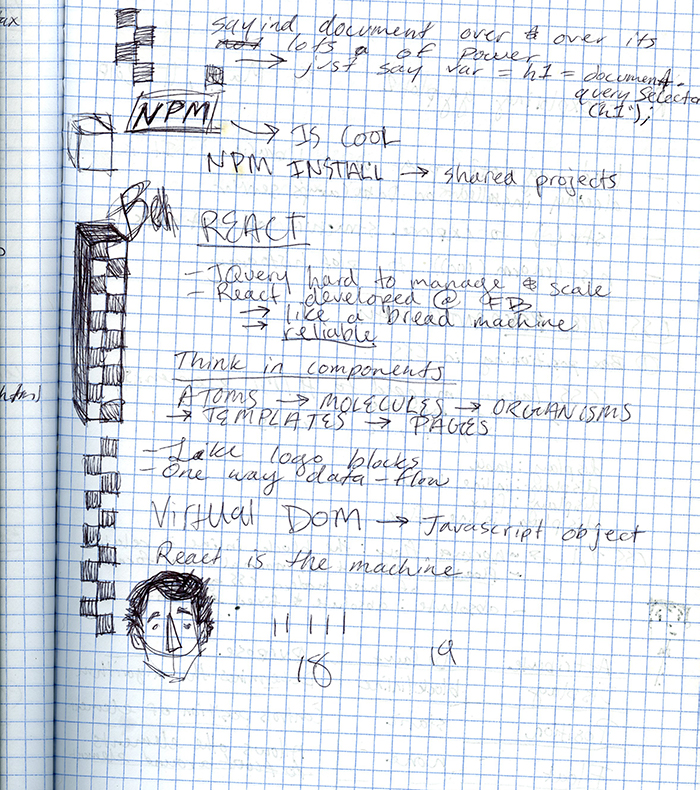 ax
sayind document over & over its
not lots a of power
→ just say var = h1 = document.
query Selecto
(h1");
NPM
→ IS COOL
NPM INSTALL → shared projects
REACT
- JQuery hard to manage & scale
- React developed @ FB
→ like a bread machine
→ reliable
Think in components
ATOMS → MOLECULES → ORGANISMS
→ TEMPLATES → PAGES
- Like logo blocks
- One way data-flow
html)
Virtual DOM → Javascript object
React is the machine
18
19